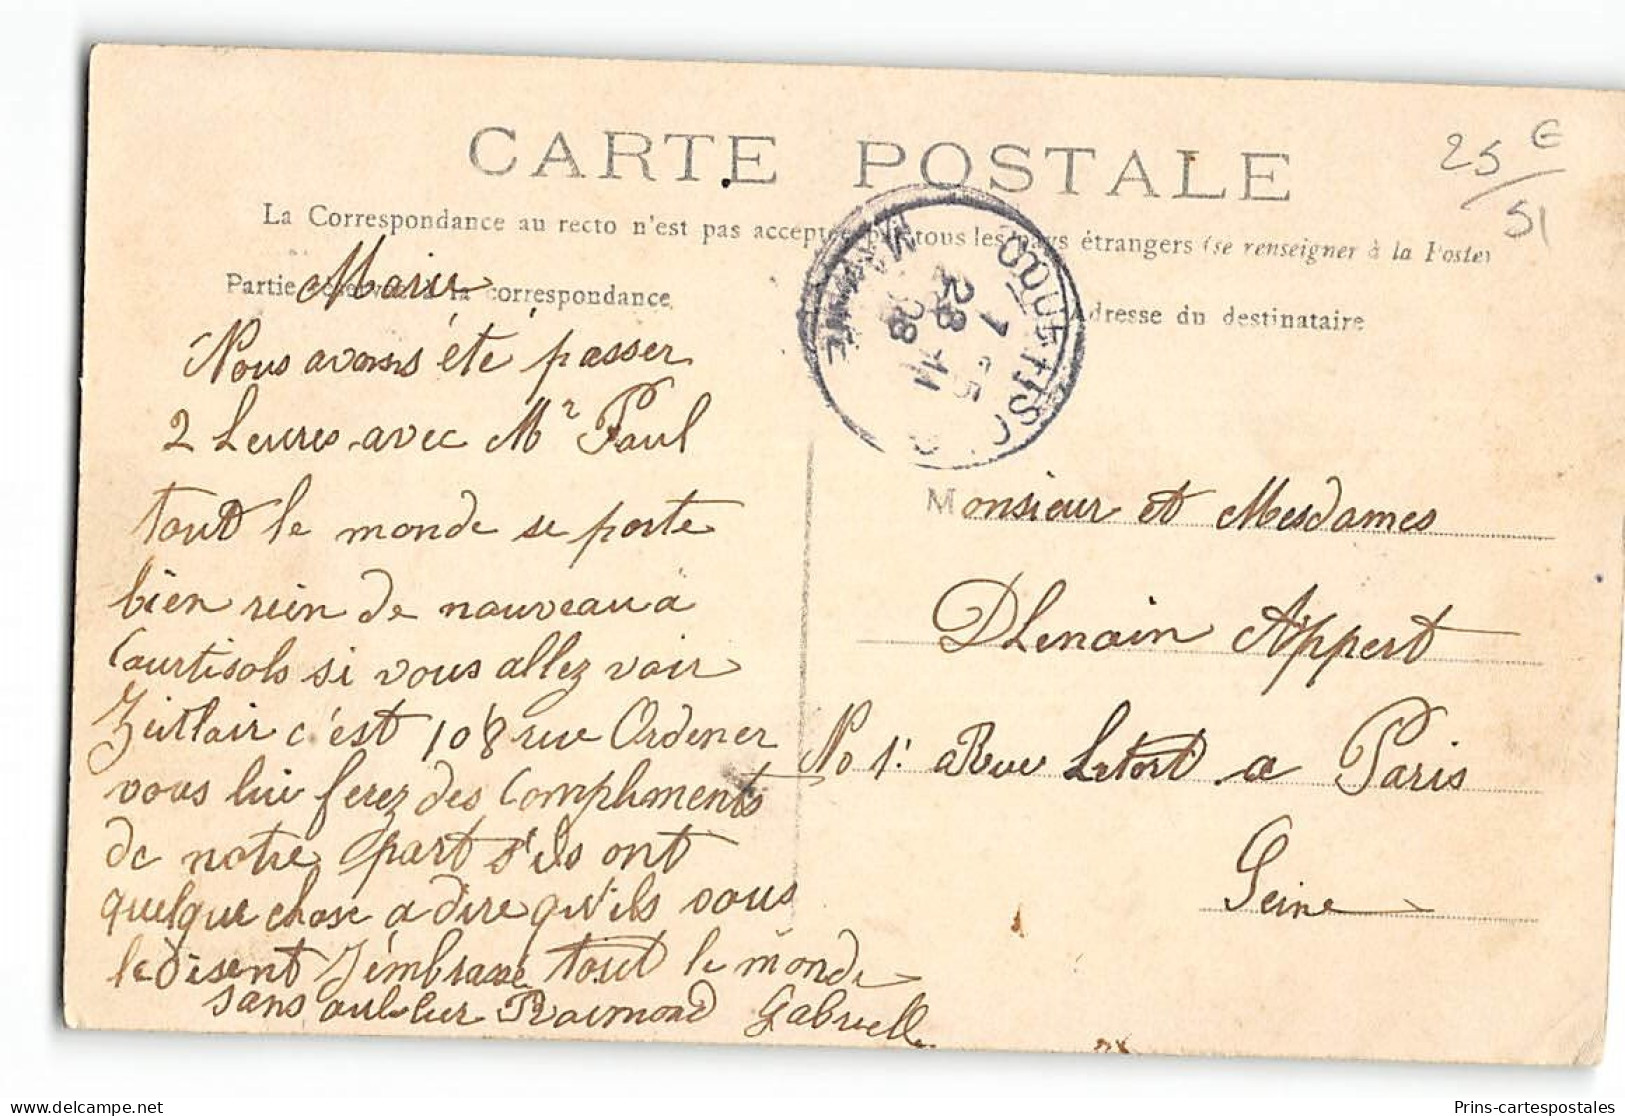 CARTE POSTALE
25 €
51
La Correspondance au recto n'est pas acceptée par tous les pays étrangers (se renseigner à la Poste)
Partie réservée à la correspondance
Adresse du destinataire
MARNE
COURTISOLS
28 11
08
Marie
Nous avons été passer
2 heures avec Mr Paul
tout le monde se porte
bien rien de nouveau a
Courtisols si vous allez voir
c'est 108 rue Ordener
vous lui ferez des Compliments
de notre part s'ils ont
quelque chose a dire qu'ils vous
le disent J'émbrasse tout le monde
sans oublier Raimond Gabriell
Monsieur et Mesdames
Dhenain Appert
No 1. Rue Letort a Paris
Seine
Prins-cartespostales